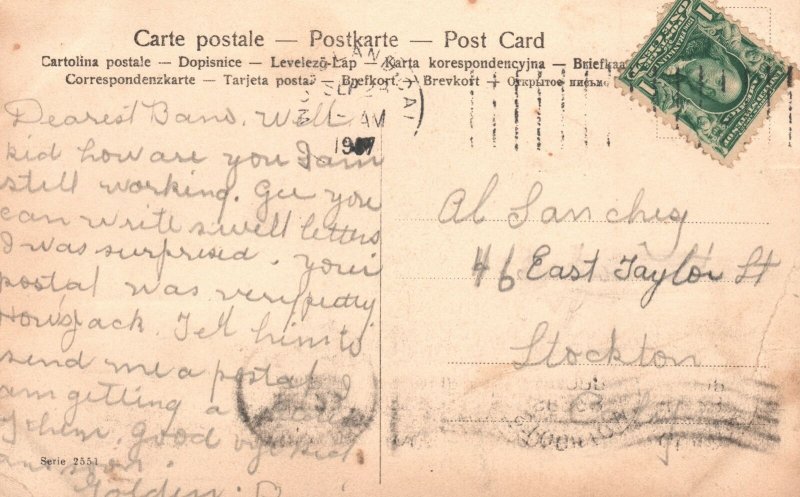 Carte postale — Postkarte — Post Card
Cartolina postale — Dopisnice — Levelező-Lap — Karta korespondencyjna — Briefkaa
Correspondenzkarte — Tarjeta postal — Brefkort — Brevkort — Открытое письмо
SEP
AM
1907
Dearest Band. Well
kid how are you I am
still working. Gee you
can write swell letters
I was surprised. Your
postal was very pretty
How's Jack. Tell him to
send me a postal I
am getting a
of them. Good bye kid
Golden.
Serie 2551
Al Sanchez
46 East Taylor St
Stockton